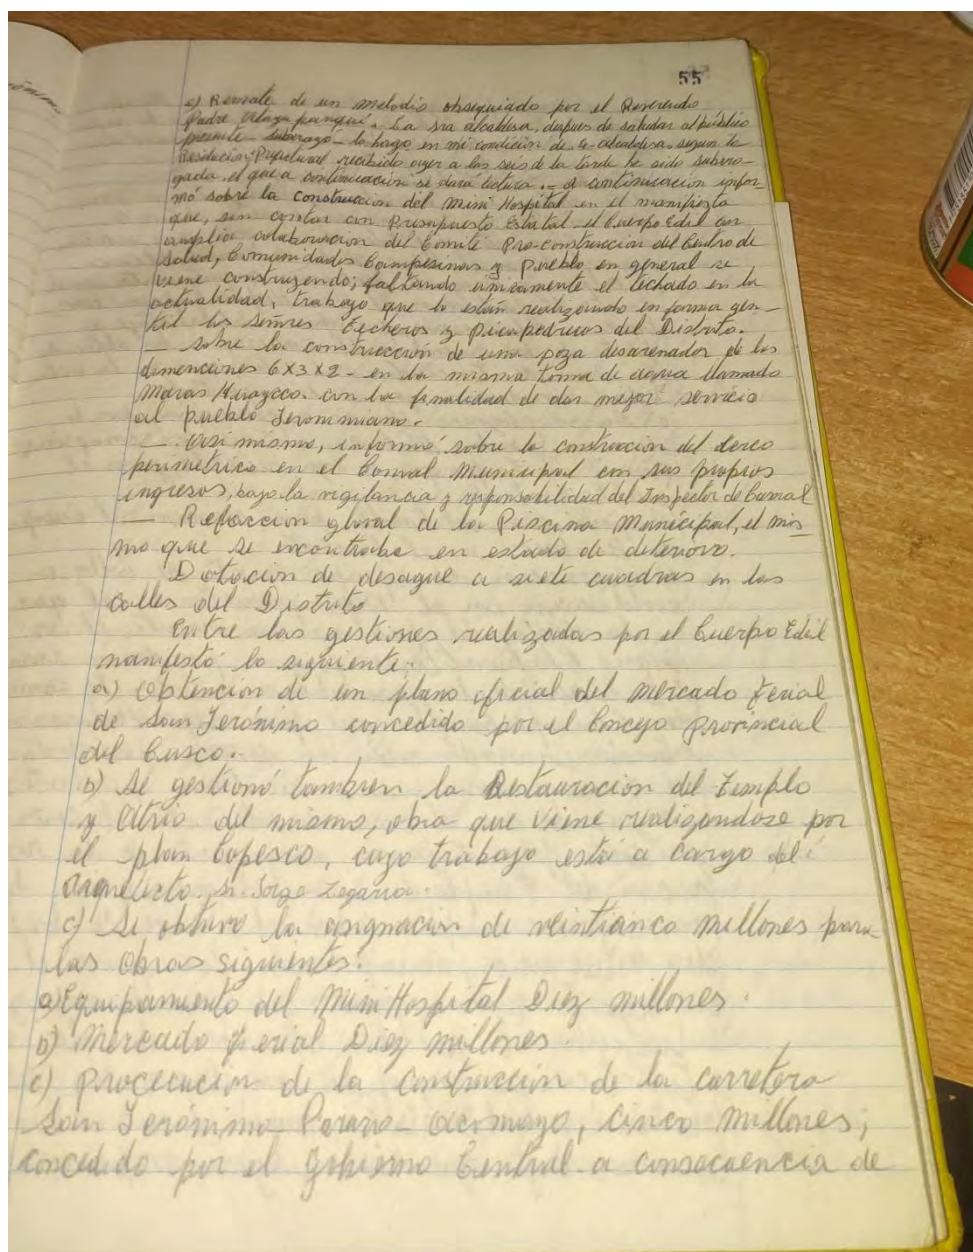 55
e) Remate de un melodio obsequiado por el Reverendo
Padre
presente - subrrogó - lo hago en mi condición de ex-alcaldesa, segun la
Resolución Prefectural recibido ayer a las seis de la tarde he sido subrro-
gada, el que a continuación se dará lectura. - A continuación infor-
mó sobre la Construccion del Mini Hospital en el manifiesta
que, sin contar con Presupuesto Estatal el Cuerpo Edil con
amplia colaboracion del Comité Pro-Construccion del Centro de
Salud, Comunidades Campesinas y Pueblo en general se
viene construyendo; faltando unicamente el techado en la
actualidad, trabajo que lo están realizando en forma gen-
til los Señores Techeros y Picapedreros del Distrito.
- Sobre la construcción de una poza desarenador de las
dimenciones 6x3x2 - en la misma toma de agua llamado
Maras Huaycco. con la finalidad de dar mejor servicio
al pueblo Jeronimiano.
- Asi mismo, informó sobre la construcion del cerco
perimetrico en el Camal Municipal con sus propios
ingresos, bajo la vigilancia y responsabilidad del Inspector de Camal
- Refaccion global de la Piscina Municipal, el mis-
mo que se encontraba en estado de deterioro.
Dotacion de desague a siete cuadras en las
calles del Distrito
Entre las gestiones realizadas por el Cuerpo Edil
manifestó lo siguiente:
a) Obtencion de un plano oficial del mercado Ferial
de San Jerónimo concedido por el Concejo Provincial
del Cusco.
b) Se gestionó tambien la Restauracion del Templo
y Atrio del mismo, obra que viene realizandose por
el plan Copesco, cuyo trabajo está a cargo del
Arquitecto. Sr. Jorge Zegarra.
c) Se obtuvo la asignacion de veinticinco millones para
las Obras siguientes:
a) Equipamiento del Mini Hospital Diez millones.
b) Mercado Ferial Diez millones
c) Procecucion de la Construccion de la carretera
San Jerónimo - Acomayo, cinco millones;
concedido por el Gobierno Central a consecuencia de